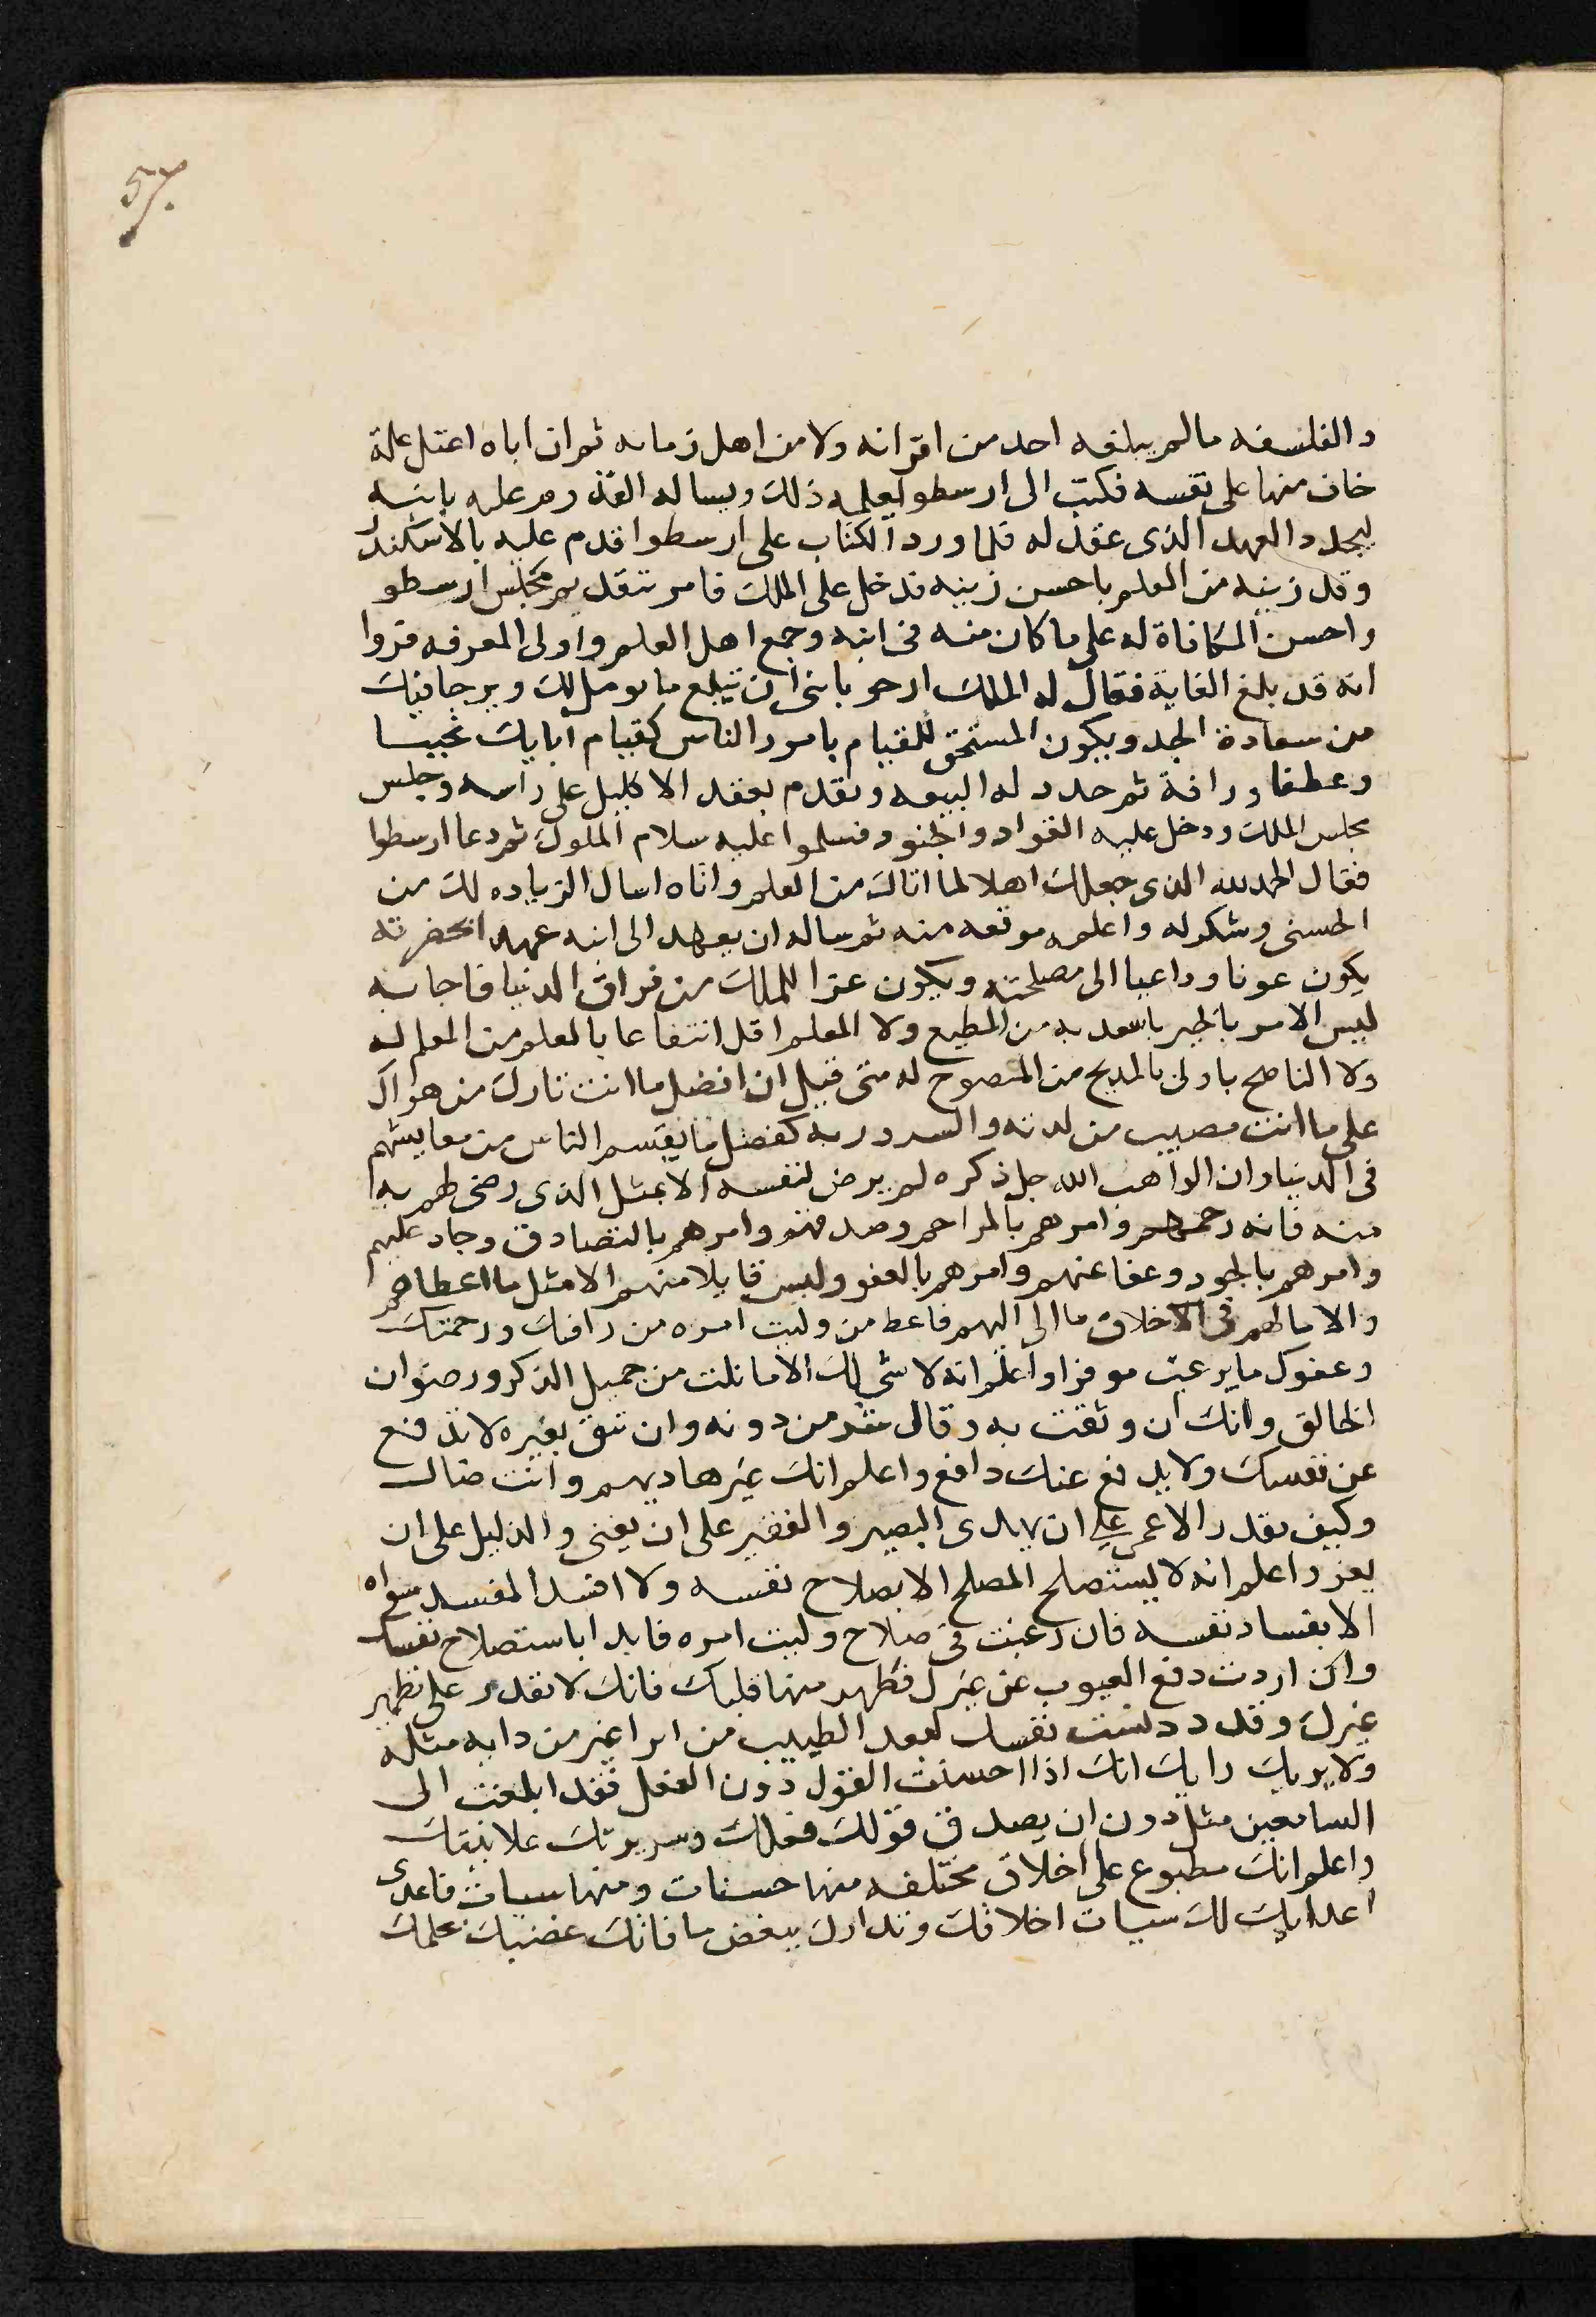 57.
والفلسفه مالم يبلغه احد من اقرانه ولا من اهل زمانه ثم ان اباه اعتل علة
خاف منها على نفسه فكتب الى ارسطو يعلمه ذلك ويساله القدوم عليه بابنه
ليجدد العهد الذى عقد له فلما ورد الكتاب على ارسطوا قدم عليه بالاسكندر
وقد زينه من العلم باحسن زينه فدخل على الملك فامر بتقديم مجلس ارسطو
واحسن المكافاة له على ما كان منه فى ابنه وجمع اهل العلم واولى المعرفه فروا
انه قد بلغ الغاية فقال له الملك ارجو يا بنى ان تبلغ ما نومل لك ويرجا فيك
من سعادة الجد ويكون المستحق للقيام بامور الناس كقيام ابايك تحببا
وعطفا ورافة ثم جدد له البيعه وتقدم بعقد الاكليل على راسه وجلس
مجلس الملك ودخل عليه القواد والجنود فسلموا عليه سلام الملوك ثم دعا ارسطوا
فقال الحمد لله الذى جعلك اهلا لما اتاك من العلم واتاه اسال الزياده لك من
الحسنى وشكر له واعلمه موقعه منه ثم ساله ان يعهد الى ابنه عهدا بحضرته
يكون عونا وداعيا الى مصلحته ويكون عزا للملك من فراق الدنيا فاجابه
ليس الامر بالخير باسعد به من المطيع ولا المعلم اقل انتفاعا بالعلم من المعلم له
ولا الناصح باولى بالمديح من المنصوح له متى قبل ان افضل ما انت تارك من هواك
على ما انت مصيب من لذته والسرور به كفضل ما يقسم الناس من معايشهم
فى الدنيا وان الواهب الله جل ذكره لم يرض لنفسه الا بمثل الذى رضى لهم به
منه فانه رحمهم وامرهم بالمراحم وصدقهم وامرهم بالتصادق وجاد عليهم
وامرهم بالجود وعفا عنهم وامرهم بالعفو وليس قابلا منهم الا مثل ما اعطاهم
والا ما لهم فى الاخلاق ما الى اليهم فاعط من وليت امره من رافتك ورحمتك
وعفوك ما يرغبت موفرا واعلم انه لا شى لك الا ما نلت من جميل الذكر ورضوان
الخالق وانك ان وثقت به وقاك من دونه وان تثق بغيره لا تدفع
عن نفسك ولا يدفع عنك دافع واعلم انك غير هاديهم وانت ضال
وكيف يقدر الاعمى على ان يهدى البصير والفقير على ان يغنى والذليل على ان
يعز واعلم انه لا يستصلح المصلح الا بصلاح نفسه ولا افسد المفسد سواه
الا بفساد نفسه فان رغبت فى صلاح وليت امره فابدا باستصلاح نفسك
وان اردت دفع العيوب عن غيرك فطهر منها قلبك فانك لا تقدر على تطهير
غيرك وقد دنست نفسك كبعد الطبيب من ابرا غيره من دا به مثله
ولا يريك رايك انك اذا احسنت القول دون الفعل فقد ابلغت الى
السامعين مثل دون ان يصدق قولك فعلك وسريرتك علانيتك
واعلم انك مطبوع على اخلاق مختلفه منها حسنات ومنها سيات فاعدى
اعدايك لك سيات اخلاقك وتدارك ببعض ما فاتك غضبك بحلمك